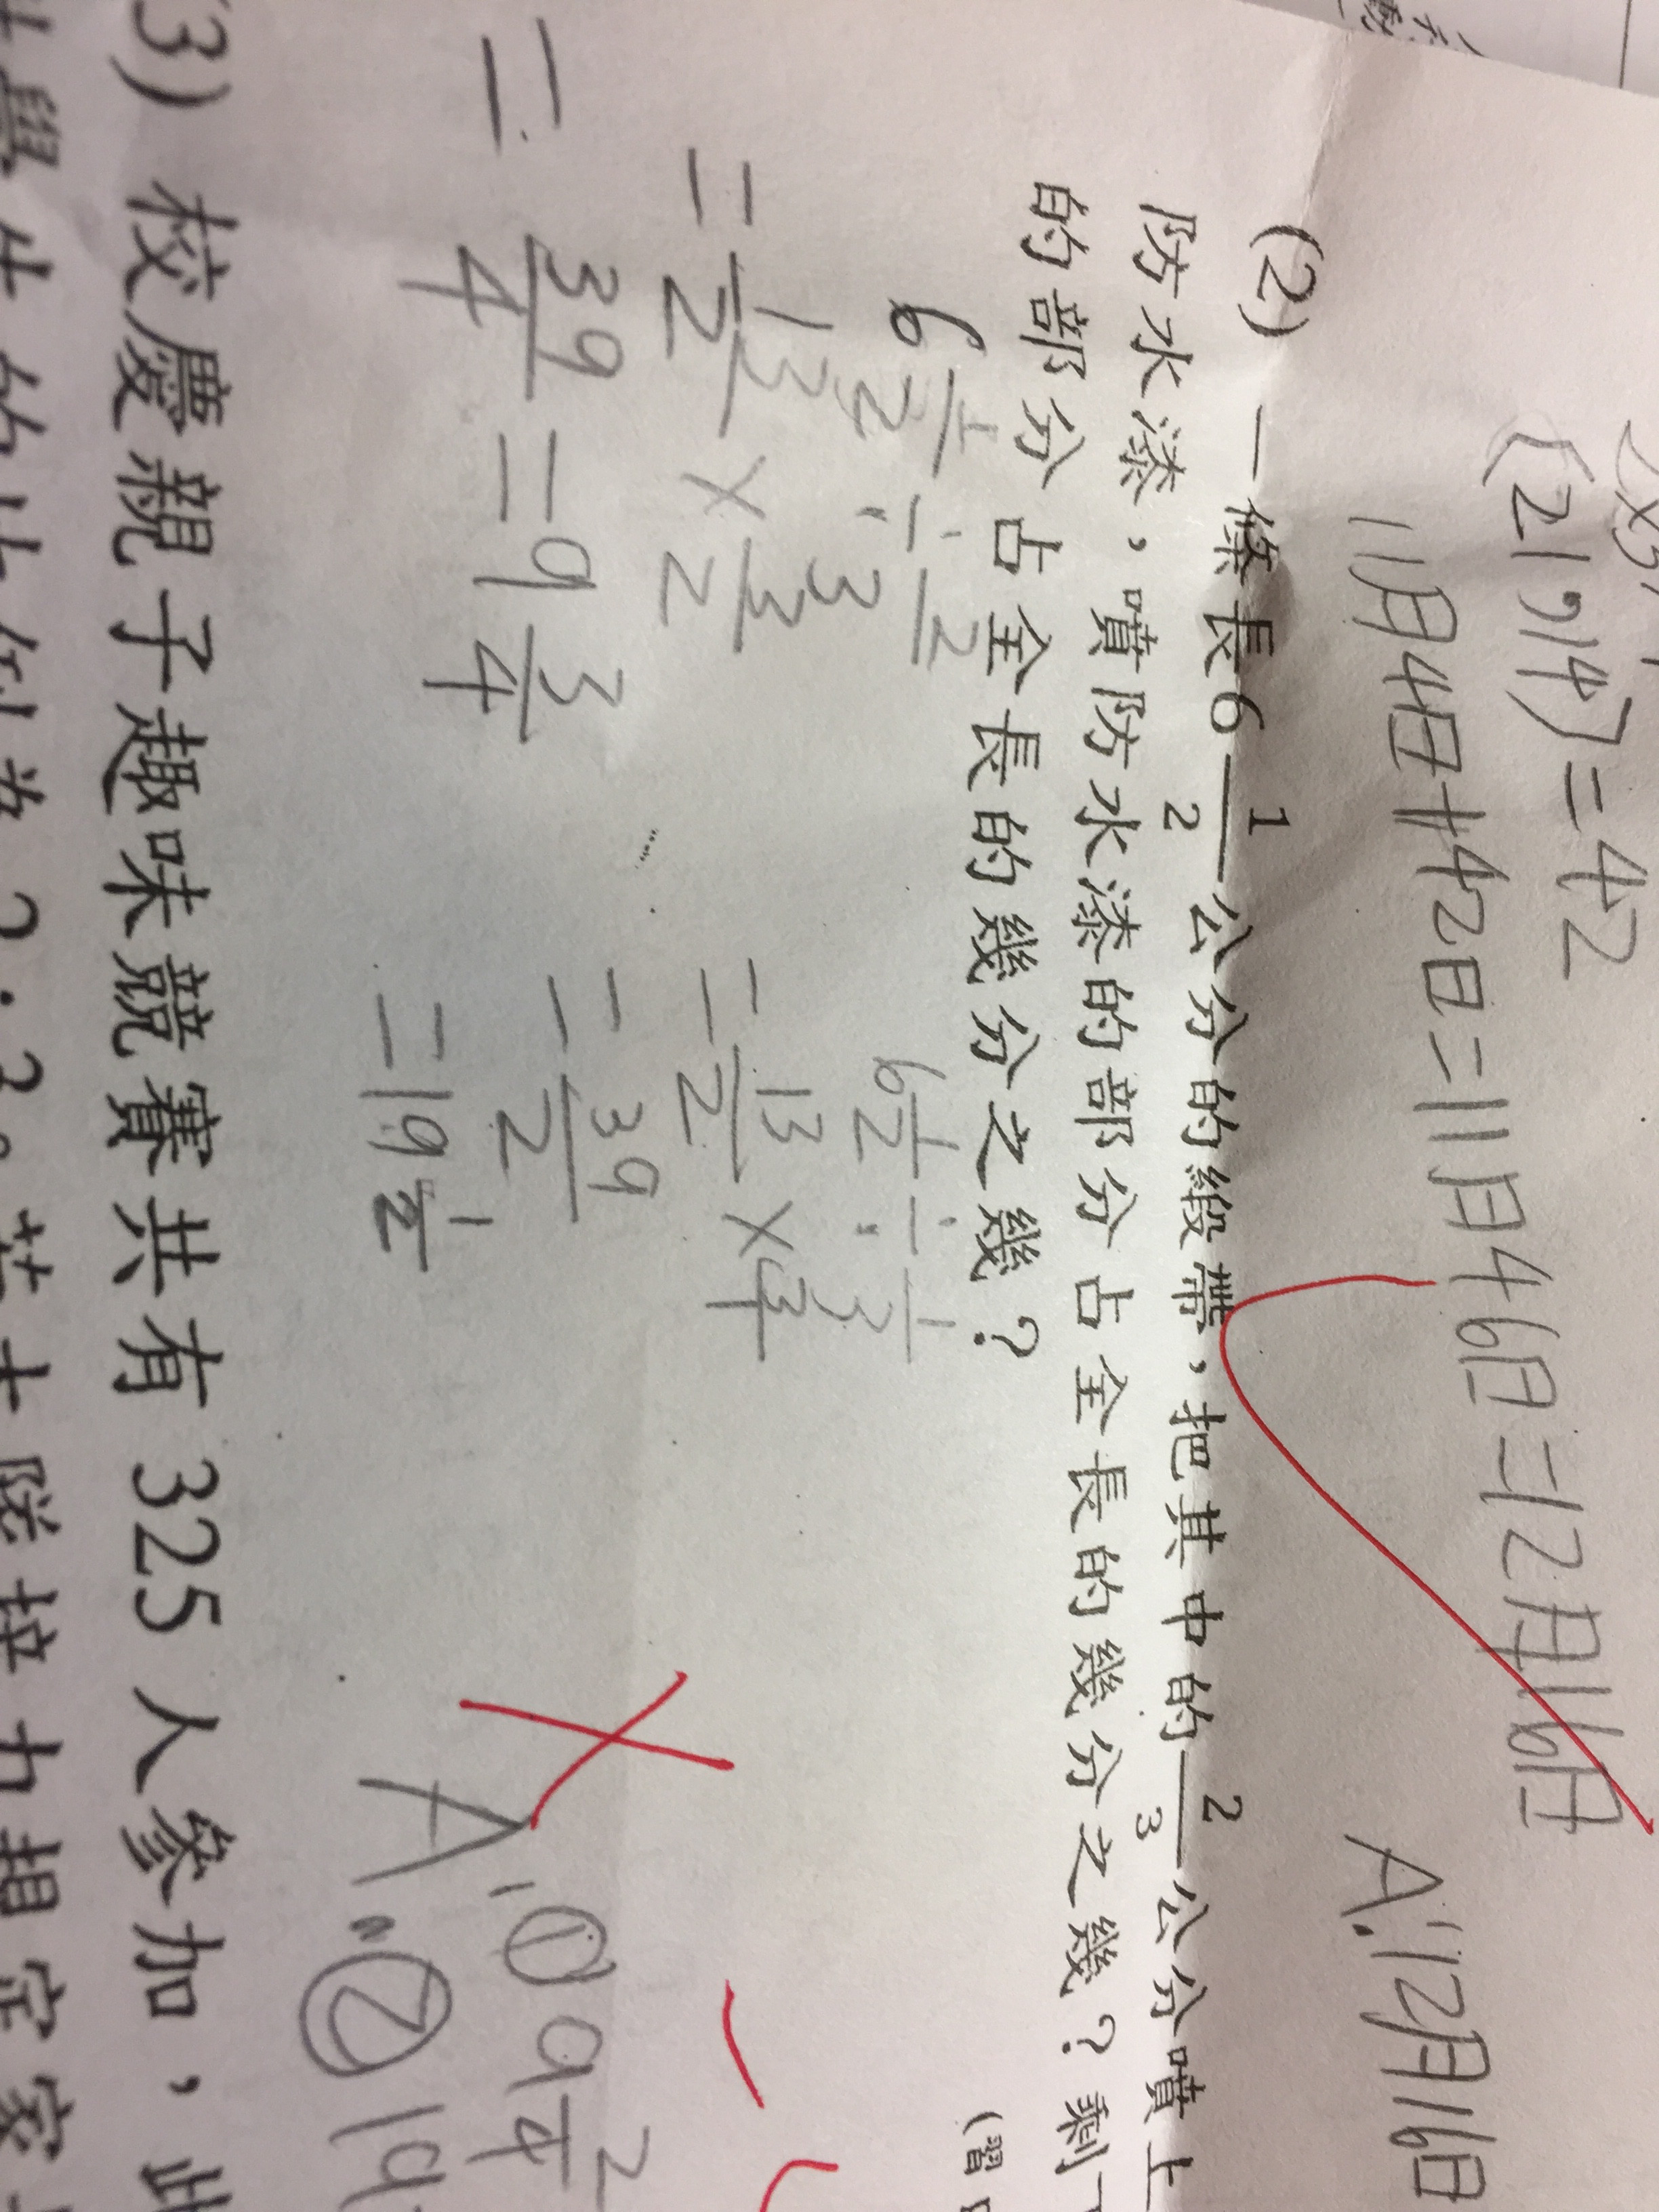 (21,14)=42
11月4日+42日=11月46日=12月16日
A:12月16日
(2) 一條長6 1/2 公分的緞帶，把其中的 2/3 公分噴上
防水漆，噴防水漆的部分占全長的幾分之幾？剩
的部分占全長的幾分之幾？
(習
6 1/2 ÷ 2/3
= 13/2 × 3/2
= 39/4 = 9 3/4
6 1/2 ÷ 1/3
= 13/2 × 3/1
= 39/2
= 19 1/2
A:① 9
② 19
3) 校慶親子趣味競賽共有325人參加，此